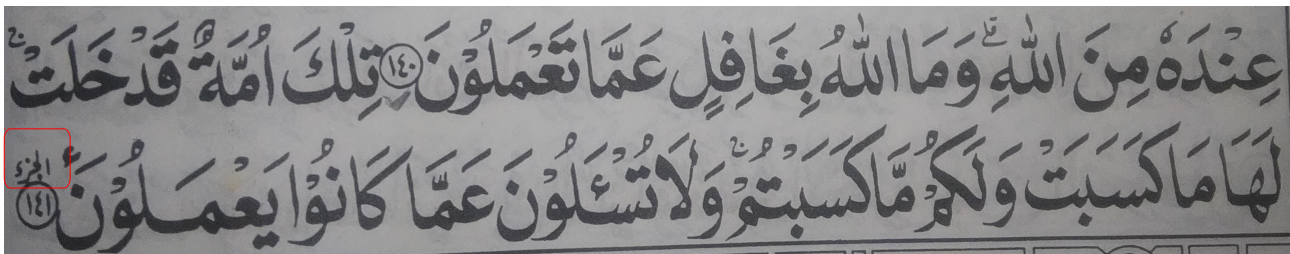 عِنْدَهٗ مِنَ اللّٰهِ ؕ وَمَا اللّٰهُ بِغَافِلٍ عَمَّا تَعْمَلُوْنَ ﴿١٤٠﴾ تِلْكَ اُمَّةٌ قَدْ خَلَتْ ۚ
لَهَا مَا كَسَبَتْ وَلَكُمْ مَّا كَسَبْتُمْ ۚ وَلَا تُسْـَٔلُوْنَ عَمَّا كَانُوْا يَعْمَلُوْنَ ﴿١٤١﴾ الجزء